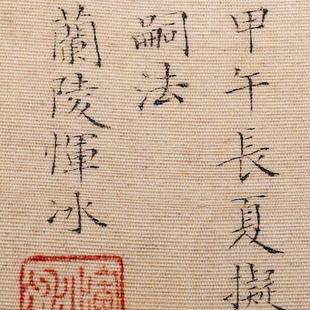 甲午長夏擬
嗣法
蘭陵惲冰